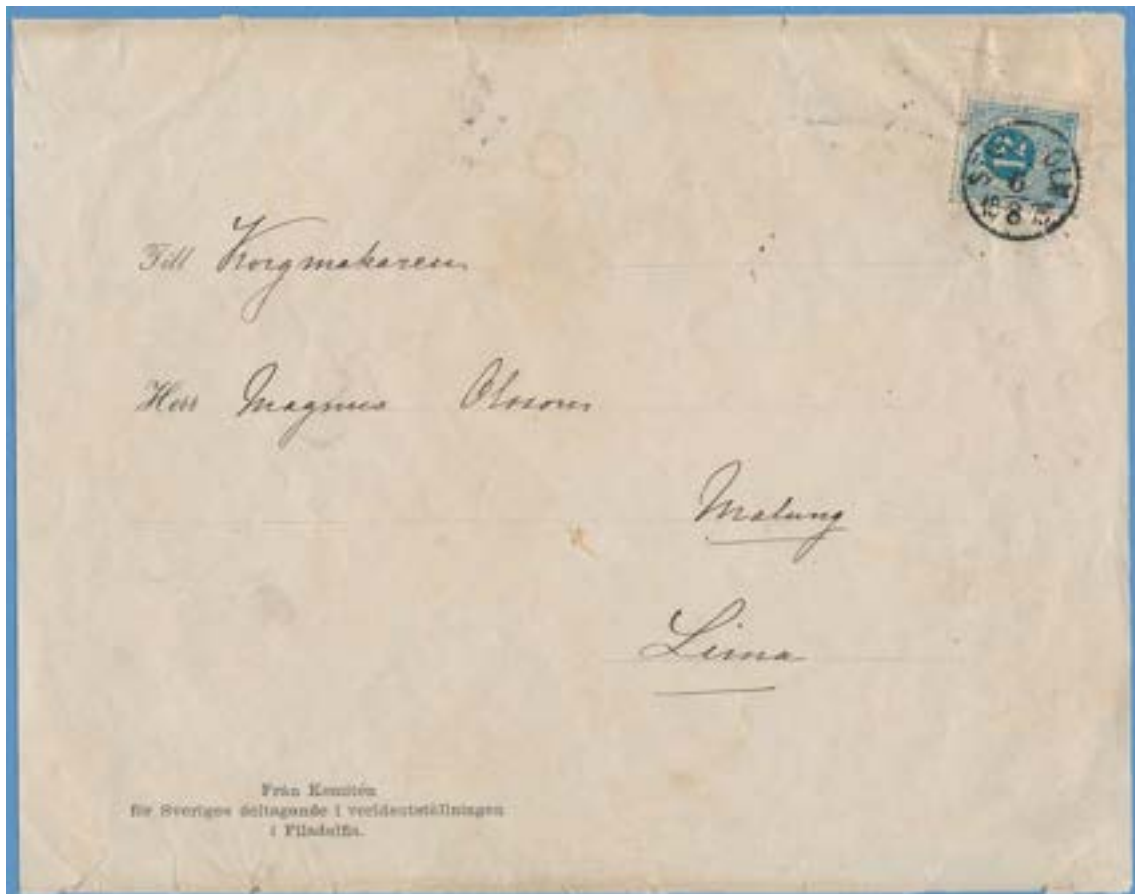 12
6
18 8 75
Till Korgmakaren
Herr Magnus Olsson
Malung
Lima
Från Komitén
för Sveriges deltagande i verldsutställningen
i Filadelfia.